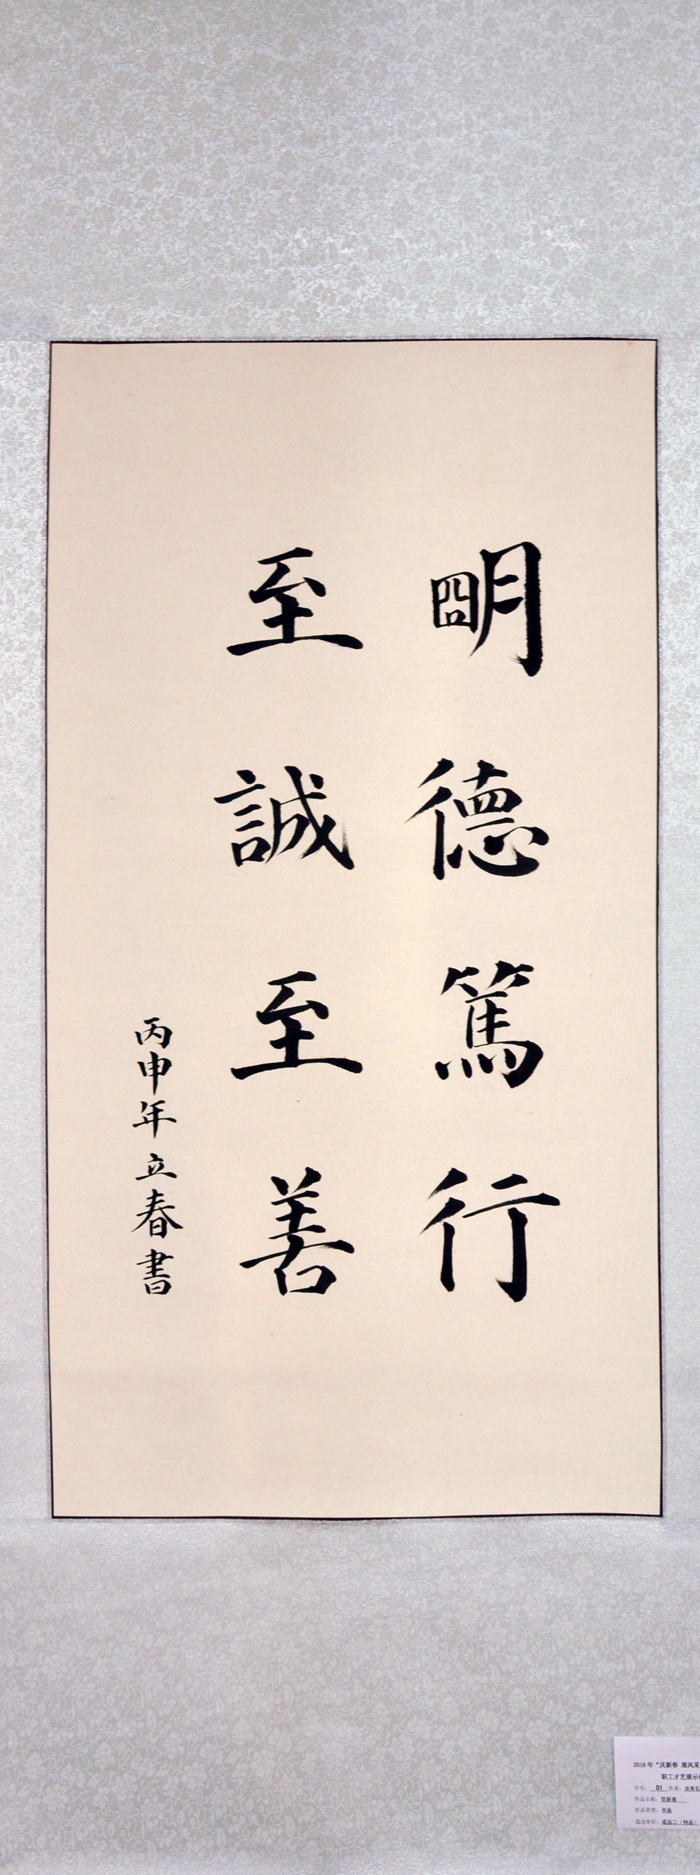 明德篤行
至誠至善
丙申年立春書
2016年“庆新春 展风采
职工才艺展示
序号：01 作者：
作品名称：贺新春
作品类型：书画
选送单位：成品二（特品）